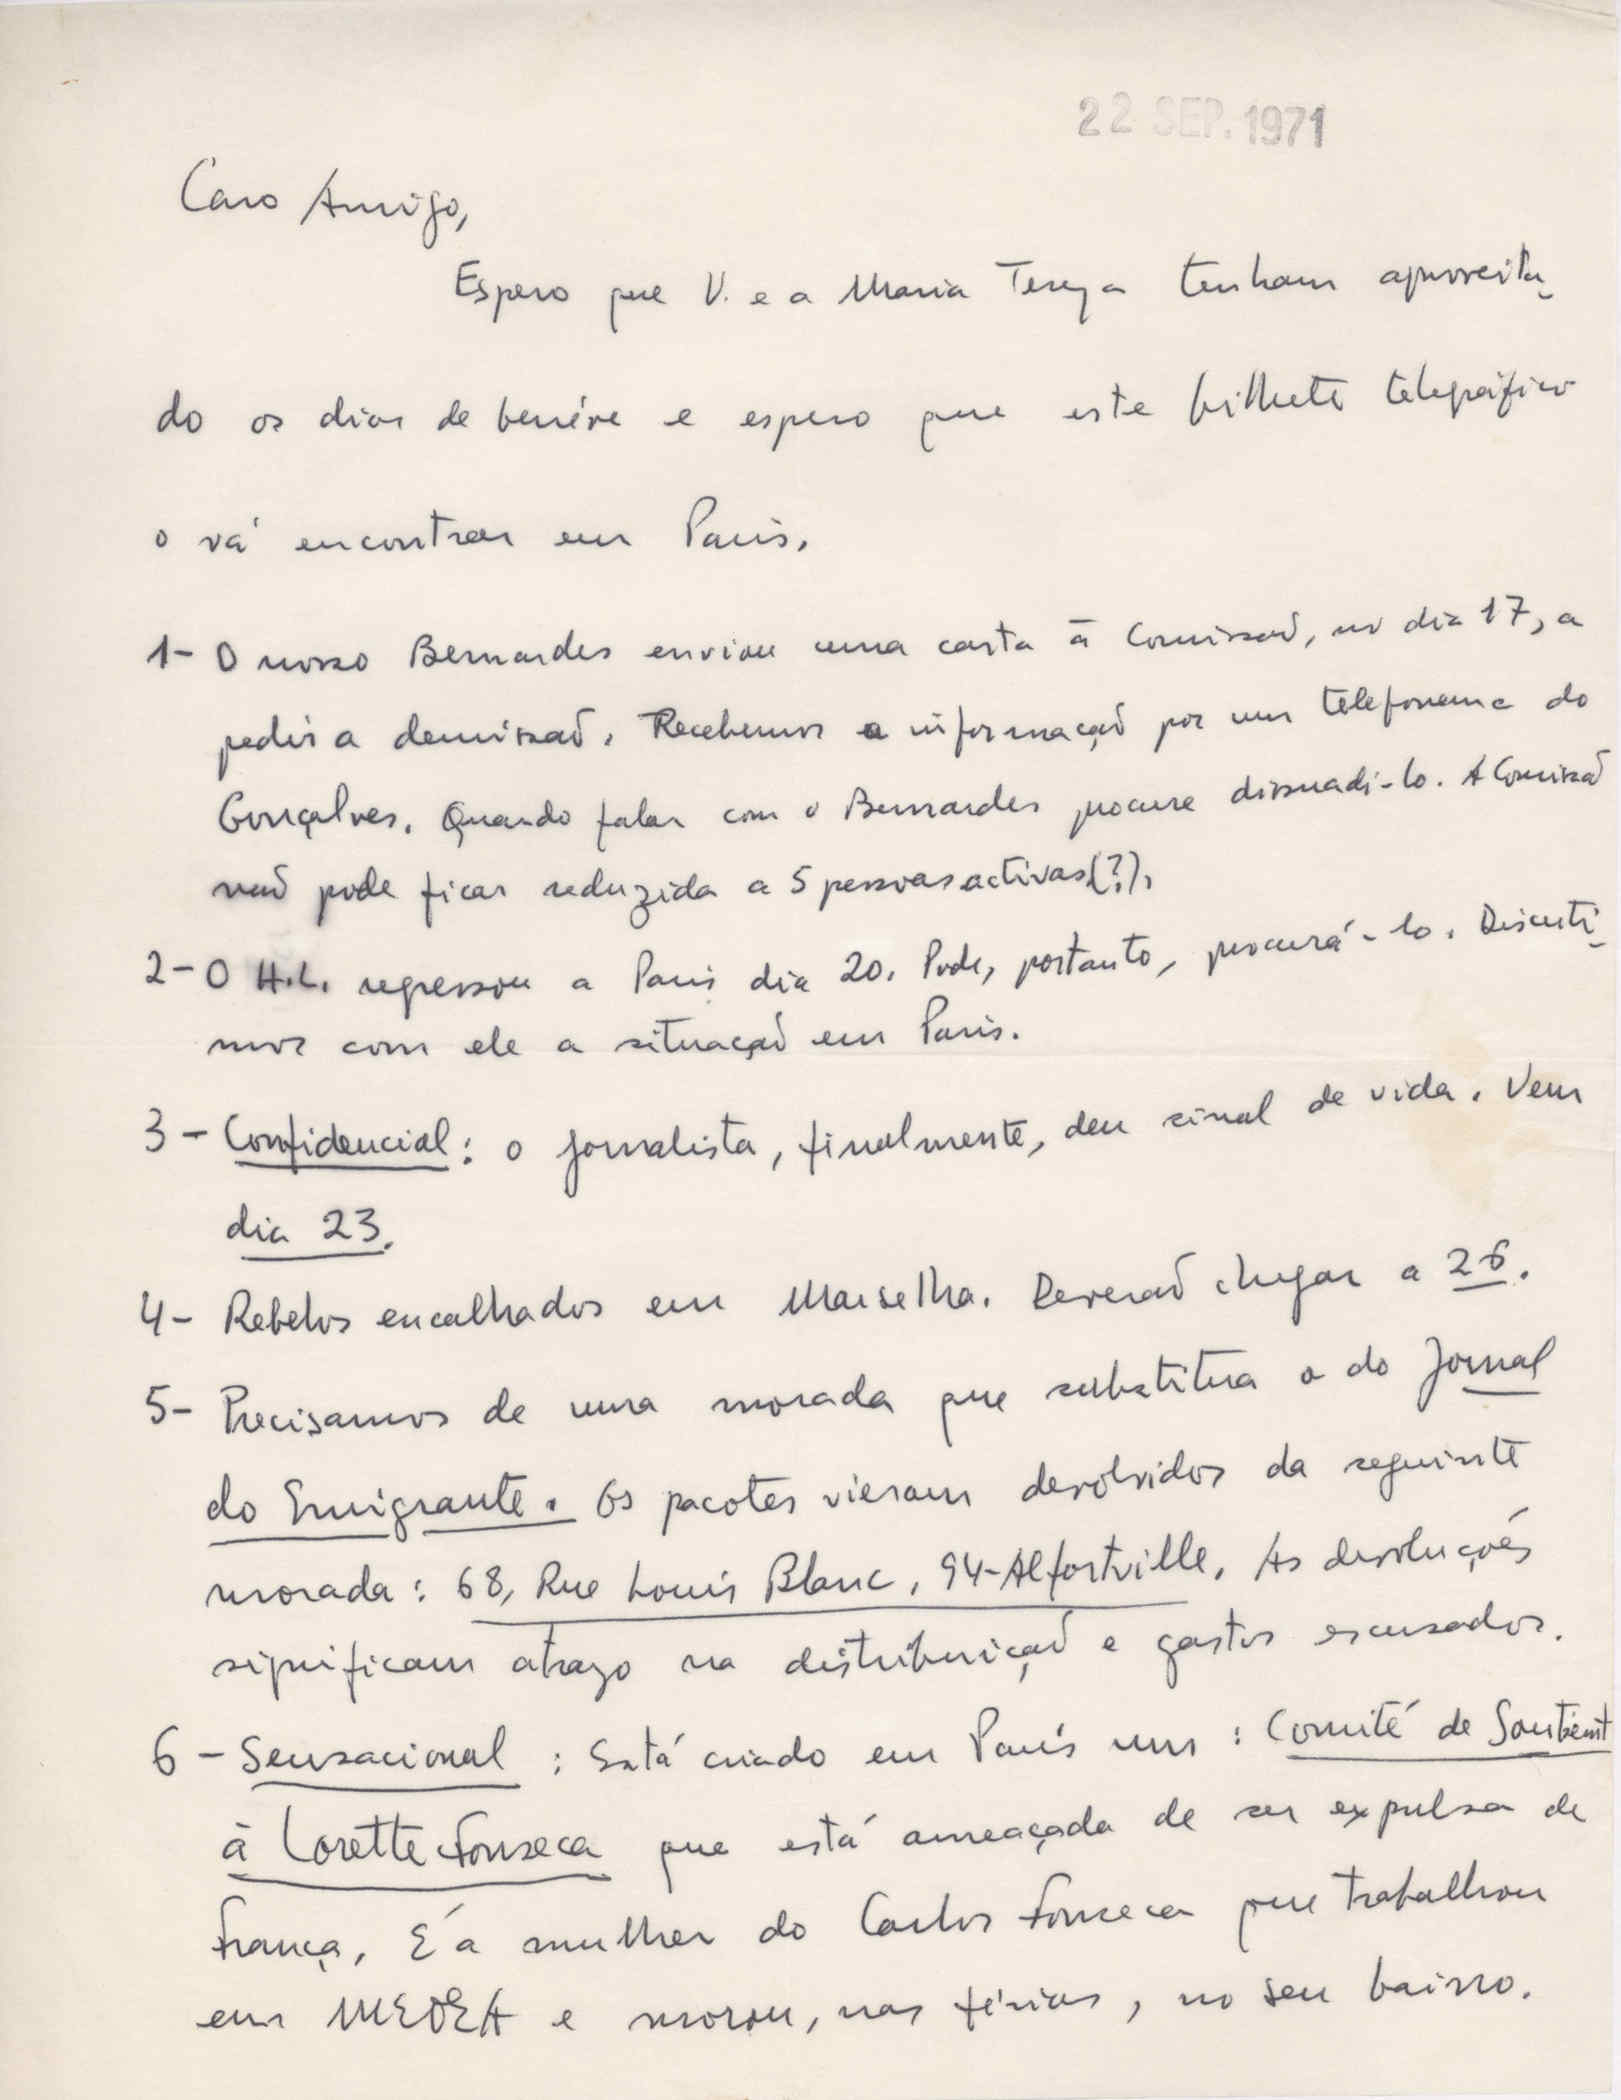 22 SEP. 1971
Caro Amigo,
Espero que V. e a Maria Tereza tenham aproveita-
do os dias de e espero que este bilhete telegráfico
o vá encontrar em Paris.
1- O nosso Bernardes enviou uma carta à Comissão, no dia 17, a
pedir a demissão. Recebemos a informação por um telefonema do
Gonçalves. Quando falar com o Bernardes procure dissuadi-lo. A Comissão
não pode ficar reduzida a 5 pessoas activas (?).
2- O H.L. regressou a Paris dia 20. Pode, portanto, procurá-lo. Discuti-
mos com ele a situação em Paris.
3 - Confidencial: o jornalista, finalmente, deu sinal de vida. Vem
dia 23.
4- Rebelos encalhados em Marselha. Deverão chegar a 26.
5- Precisamos de uma morada que substitua a do Jornal
do Emigrante. Os pacotes vieram devolvidos da seguinte
morada: 68, Rue Louis Blanc, 94-Alfortville. As devoluções
significam atrazo na distribuição e gastos escusados.
6 - Sensacional: Está criado em Paris um: Comité de Soutient
à Lorette Fonseca que está ameaçada de ser expulsa de
França. É a mulher do Carlos Fonseca que trabalhou
em MEDEA e morou, nas férias, no seu bairro.